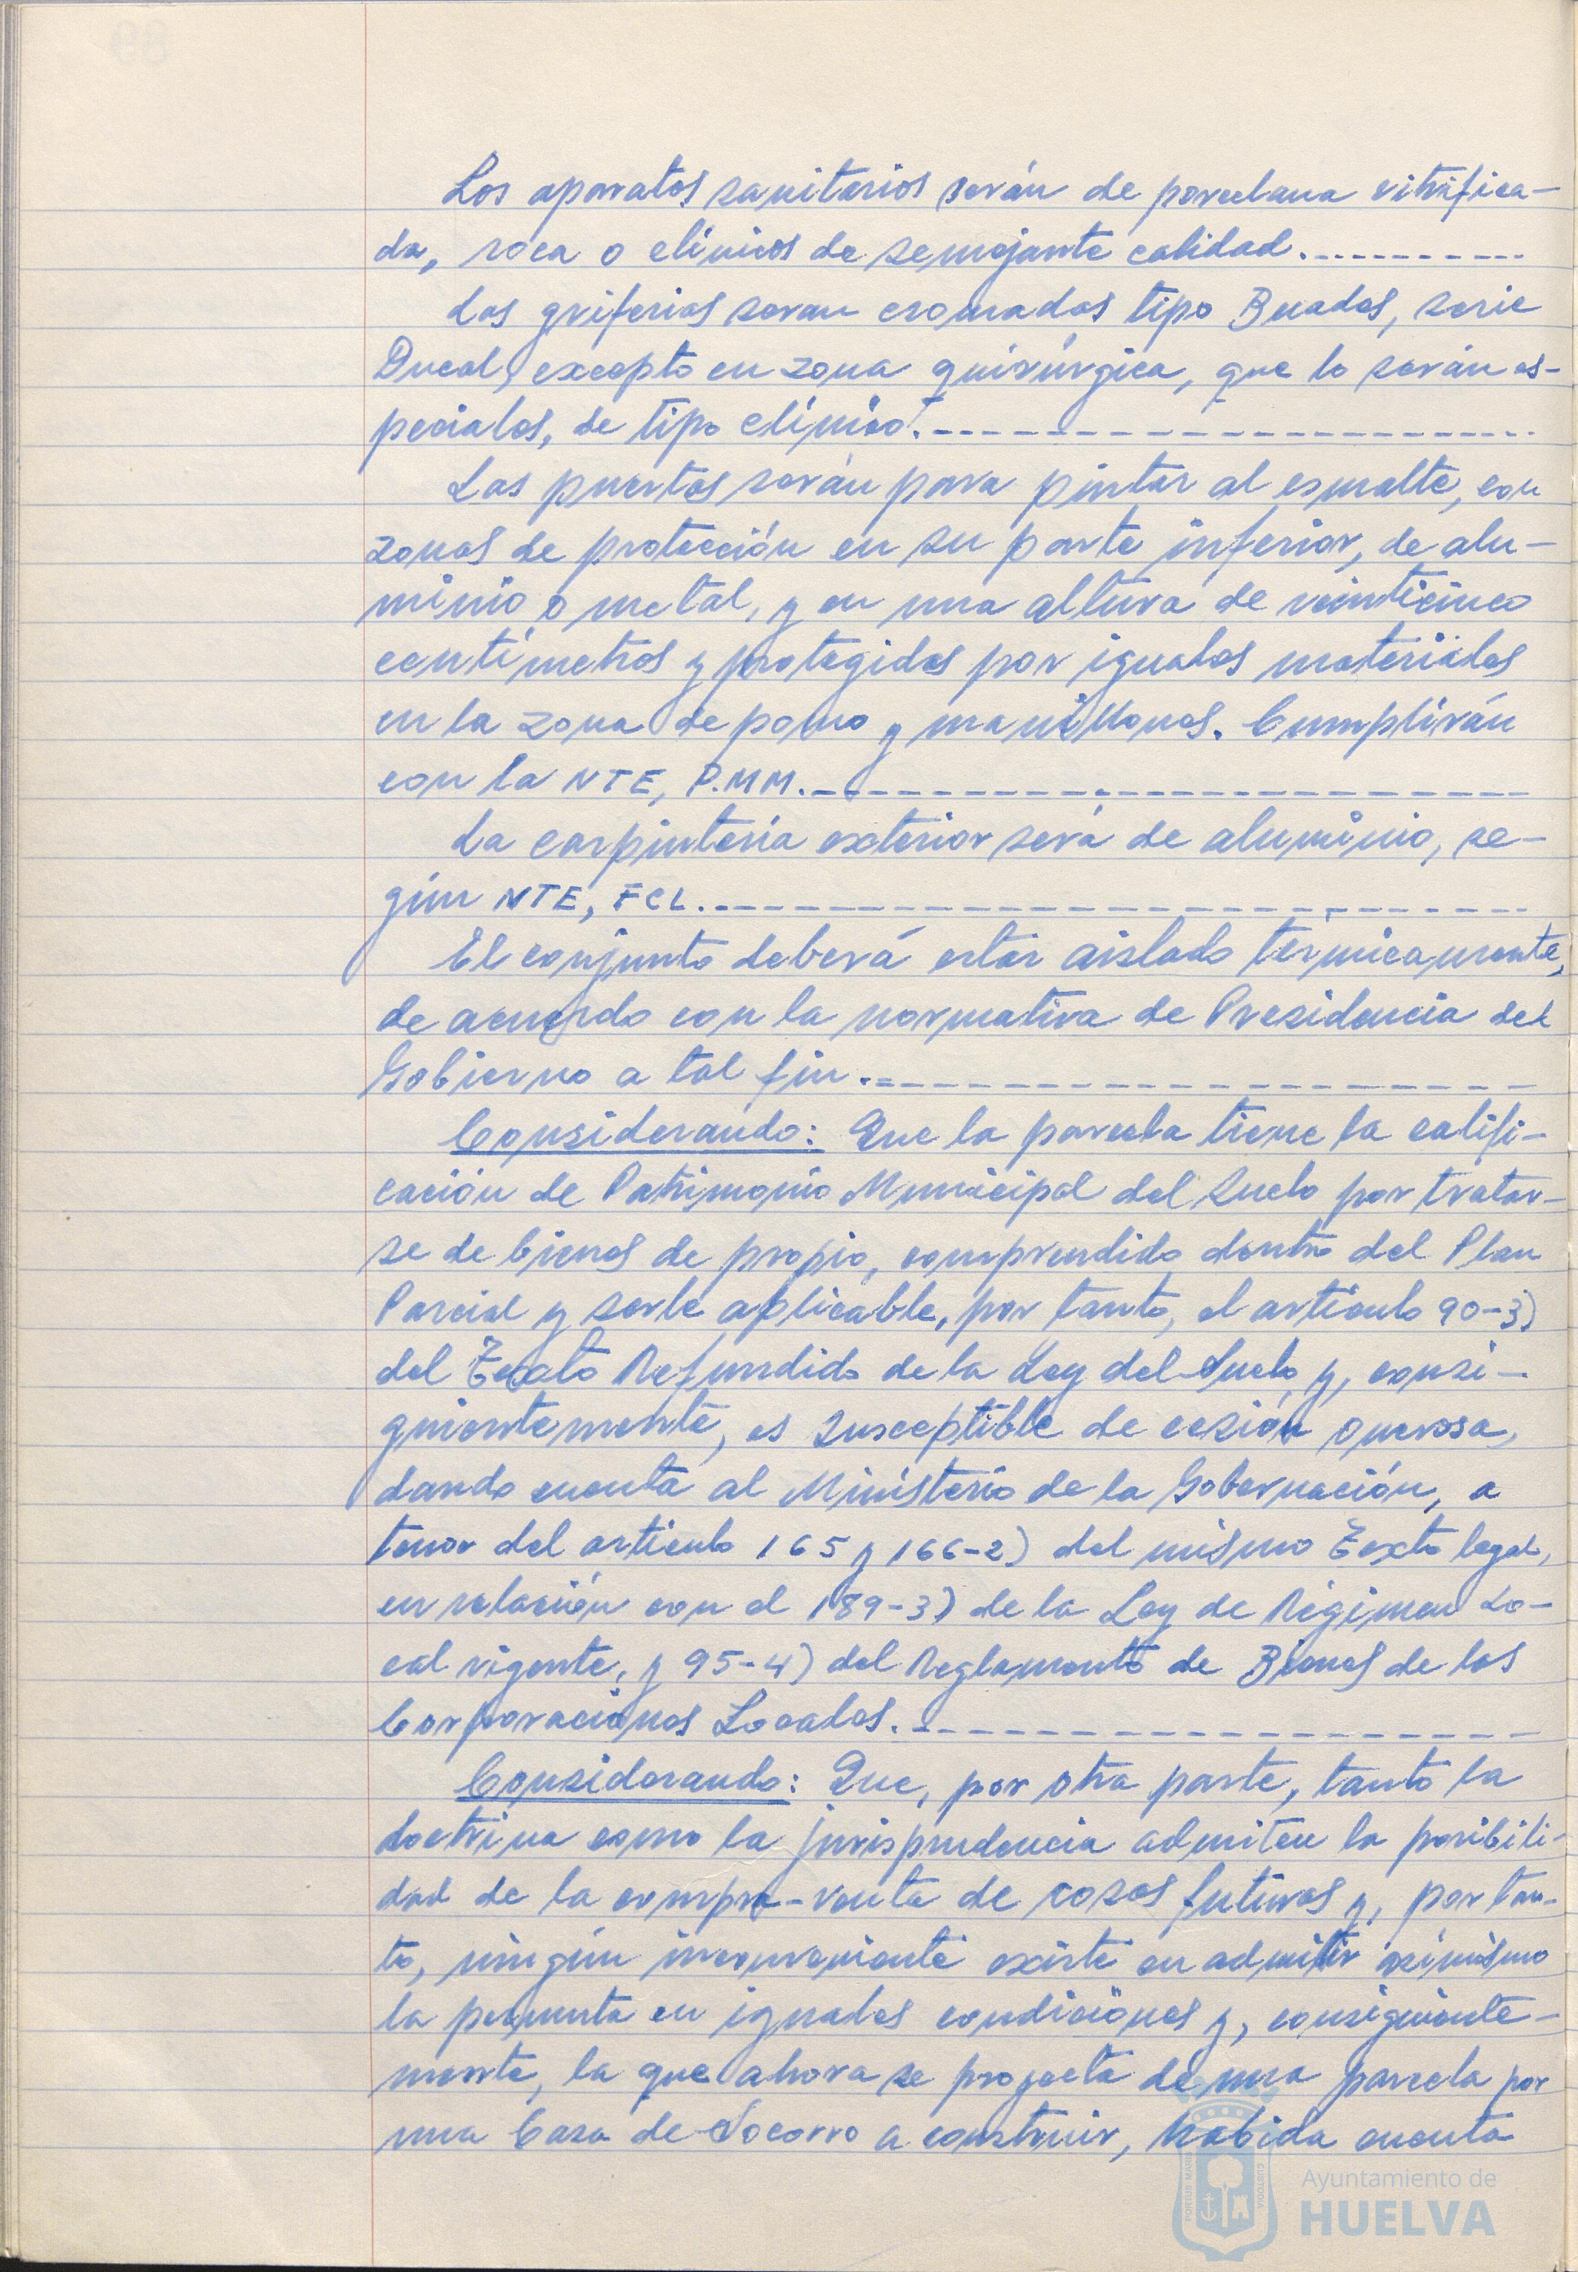 Los aparatos sanitarios serán de porcelana vitrifica-
da, roca o clínicos de semejante calidad.----------
Las griferias seran cromadas tipo Buades, serie
Ducal, excepto en zona quirúrgica, que lo serán es-
peciales, de tipo clínico.--------------------
Las puertas serán para pintar al esmalte, con
zonas de protección en su parte inferior, de alu-
minio o metal, y en una altura de veinticinco
centímetros y protegidas por iguales materiales
en la zona de pomo y manillones. Cumplirán
con la NTE, P.MM.--------------------
La carpintería exterior será de aluminio, se-
gún NTE, FCL.--------------------
El conjunto deberá estar aislado térmicamente,
de acuerdo con la normativa de Presidencia del
Gobierno a tal fin.--------------------
Considerando: Que la parcela tiene la califi-
cación de Patrimonio Municipal del Suelo por tratar-
se de bienes de propio, comprendido dentro del Plan
Parcial y serle aplicable, por tanto, el artículo 90-3)
del Texto Refundido de la Ley del Suelo y, consi-
guientemente, es susceptible de cesión onerosa,
dando cuenta al Ministerio de la Gobernación, a
tenor del articulo 165 y 166-2) del mismo Texto legal,
en relación con el 189-3) de la Ley de Régimen Lo-
cal vigente, y 95-4) del Reglamento de Bienes de las
Corporaciones Locales.--------------------
Considerando: Que, por otra parte, tanto la
doctrina como la jurisprudencia admiten la posibili-
dad de la compra-venta de cosas futuras y, por tan-
to, ningún inconveniente existe en admitir asimismo
la permuta en iguales condiciones y, consiguiente-
mente, la que ahora se proyecta de una parcela por
una Casa de Socorro a construir, habida cuenta
Ayuntamiento de
HUELVA